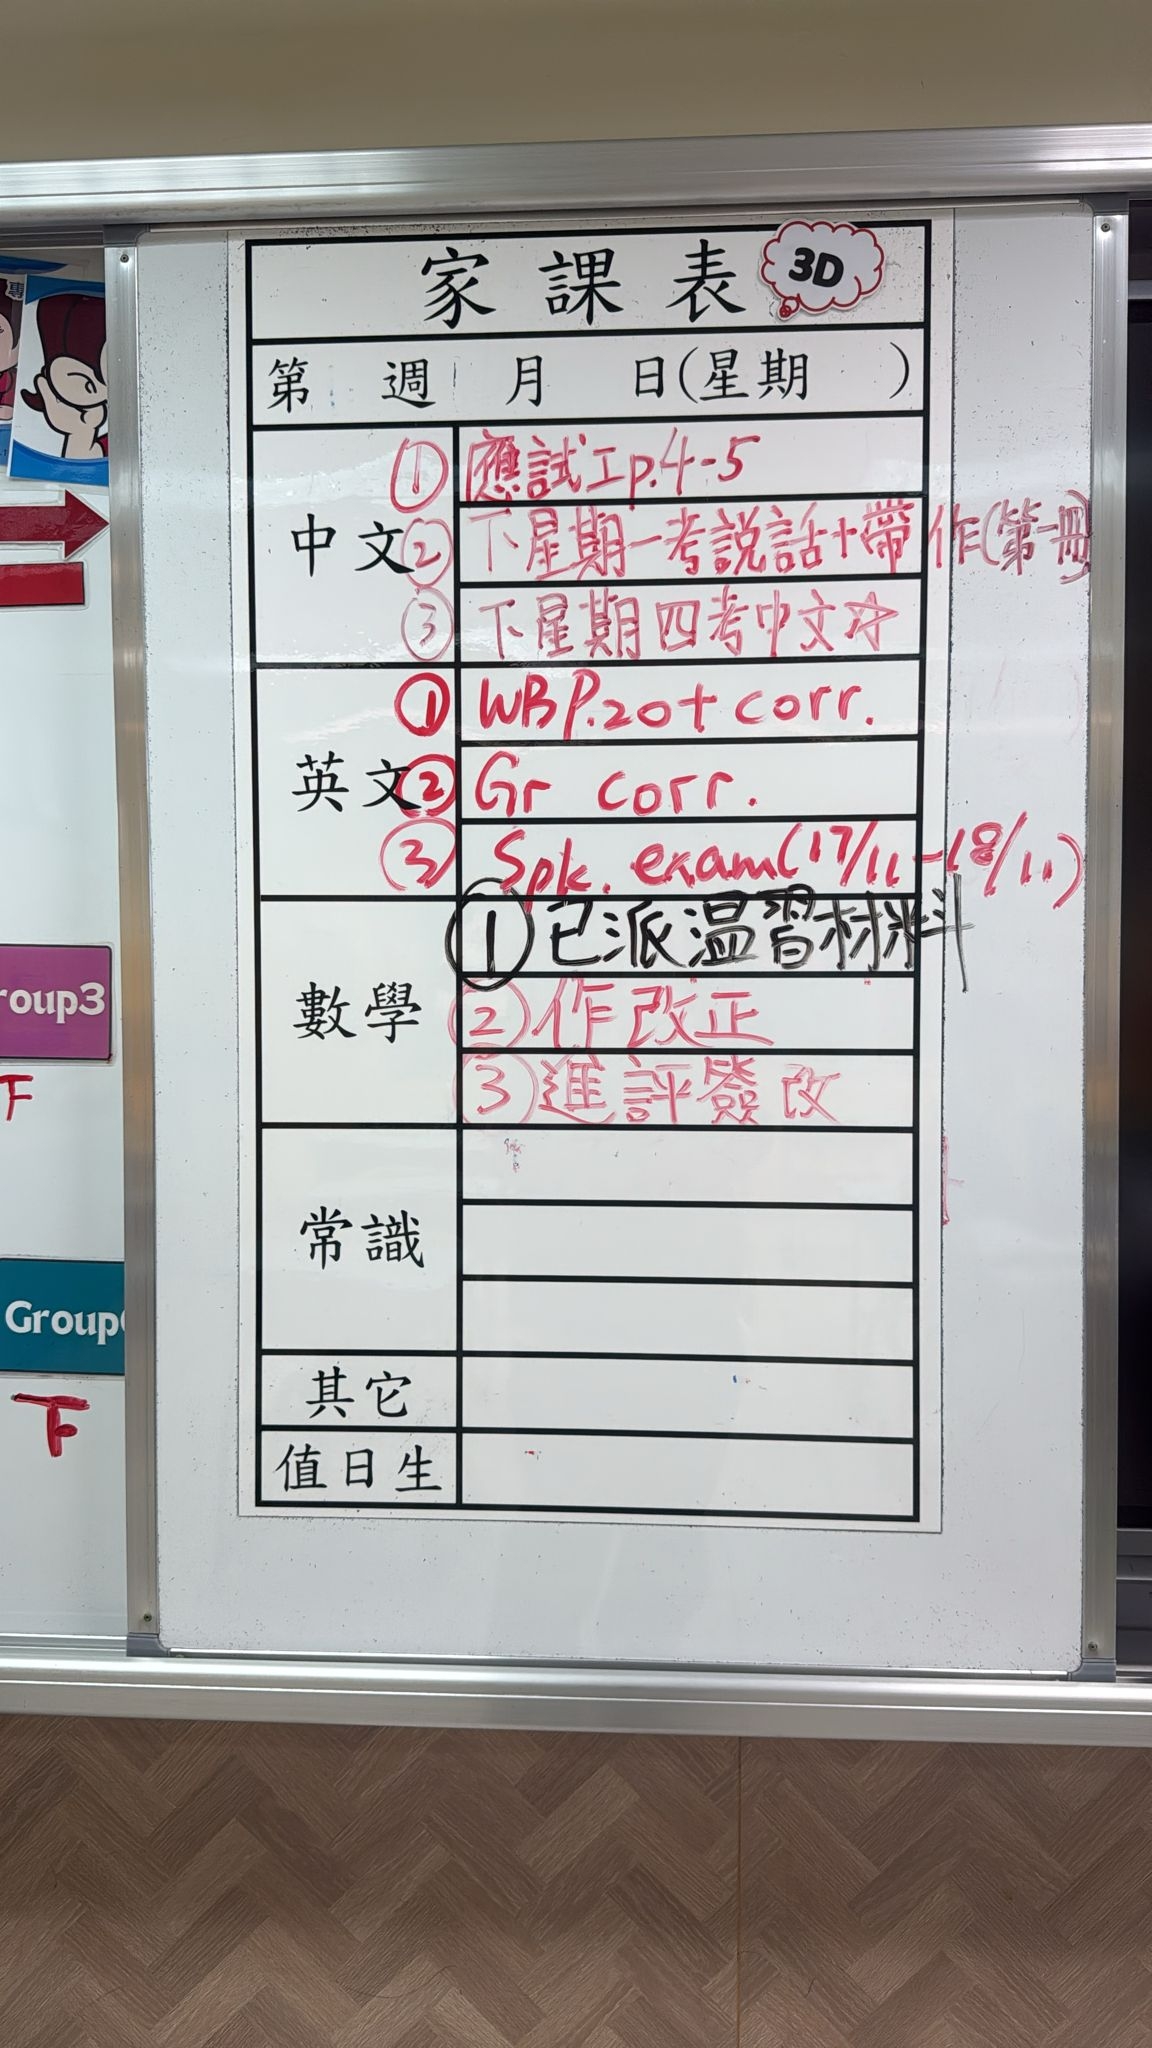 家課表 3D
第 週 月 日(星期 )
中文
① 應試工p.4-5
② 下星期一考說話+帶作(第一冊)
③ 下星期四考中文☆
英文
① WB P.20+ corr.
② Gr corr.
③ Spk. exam(17/11-18/11)
數學
① 已派温習材料
② 作改正
③ 進評簽改
常識
其它
值日生
roup3
下
Group
下